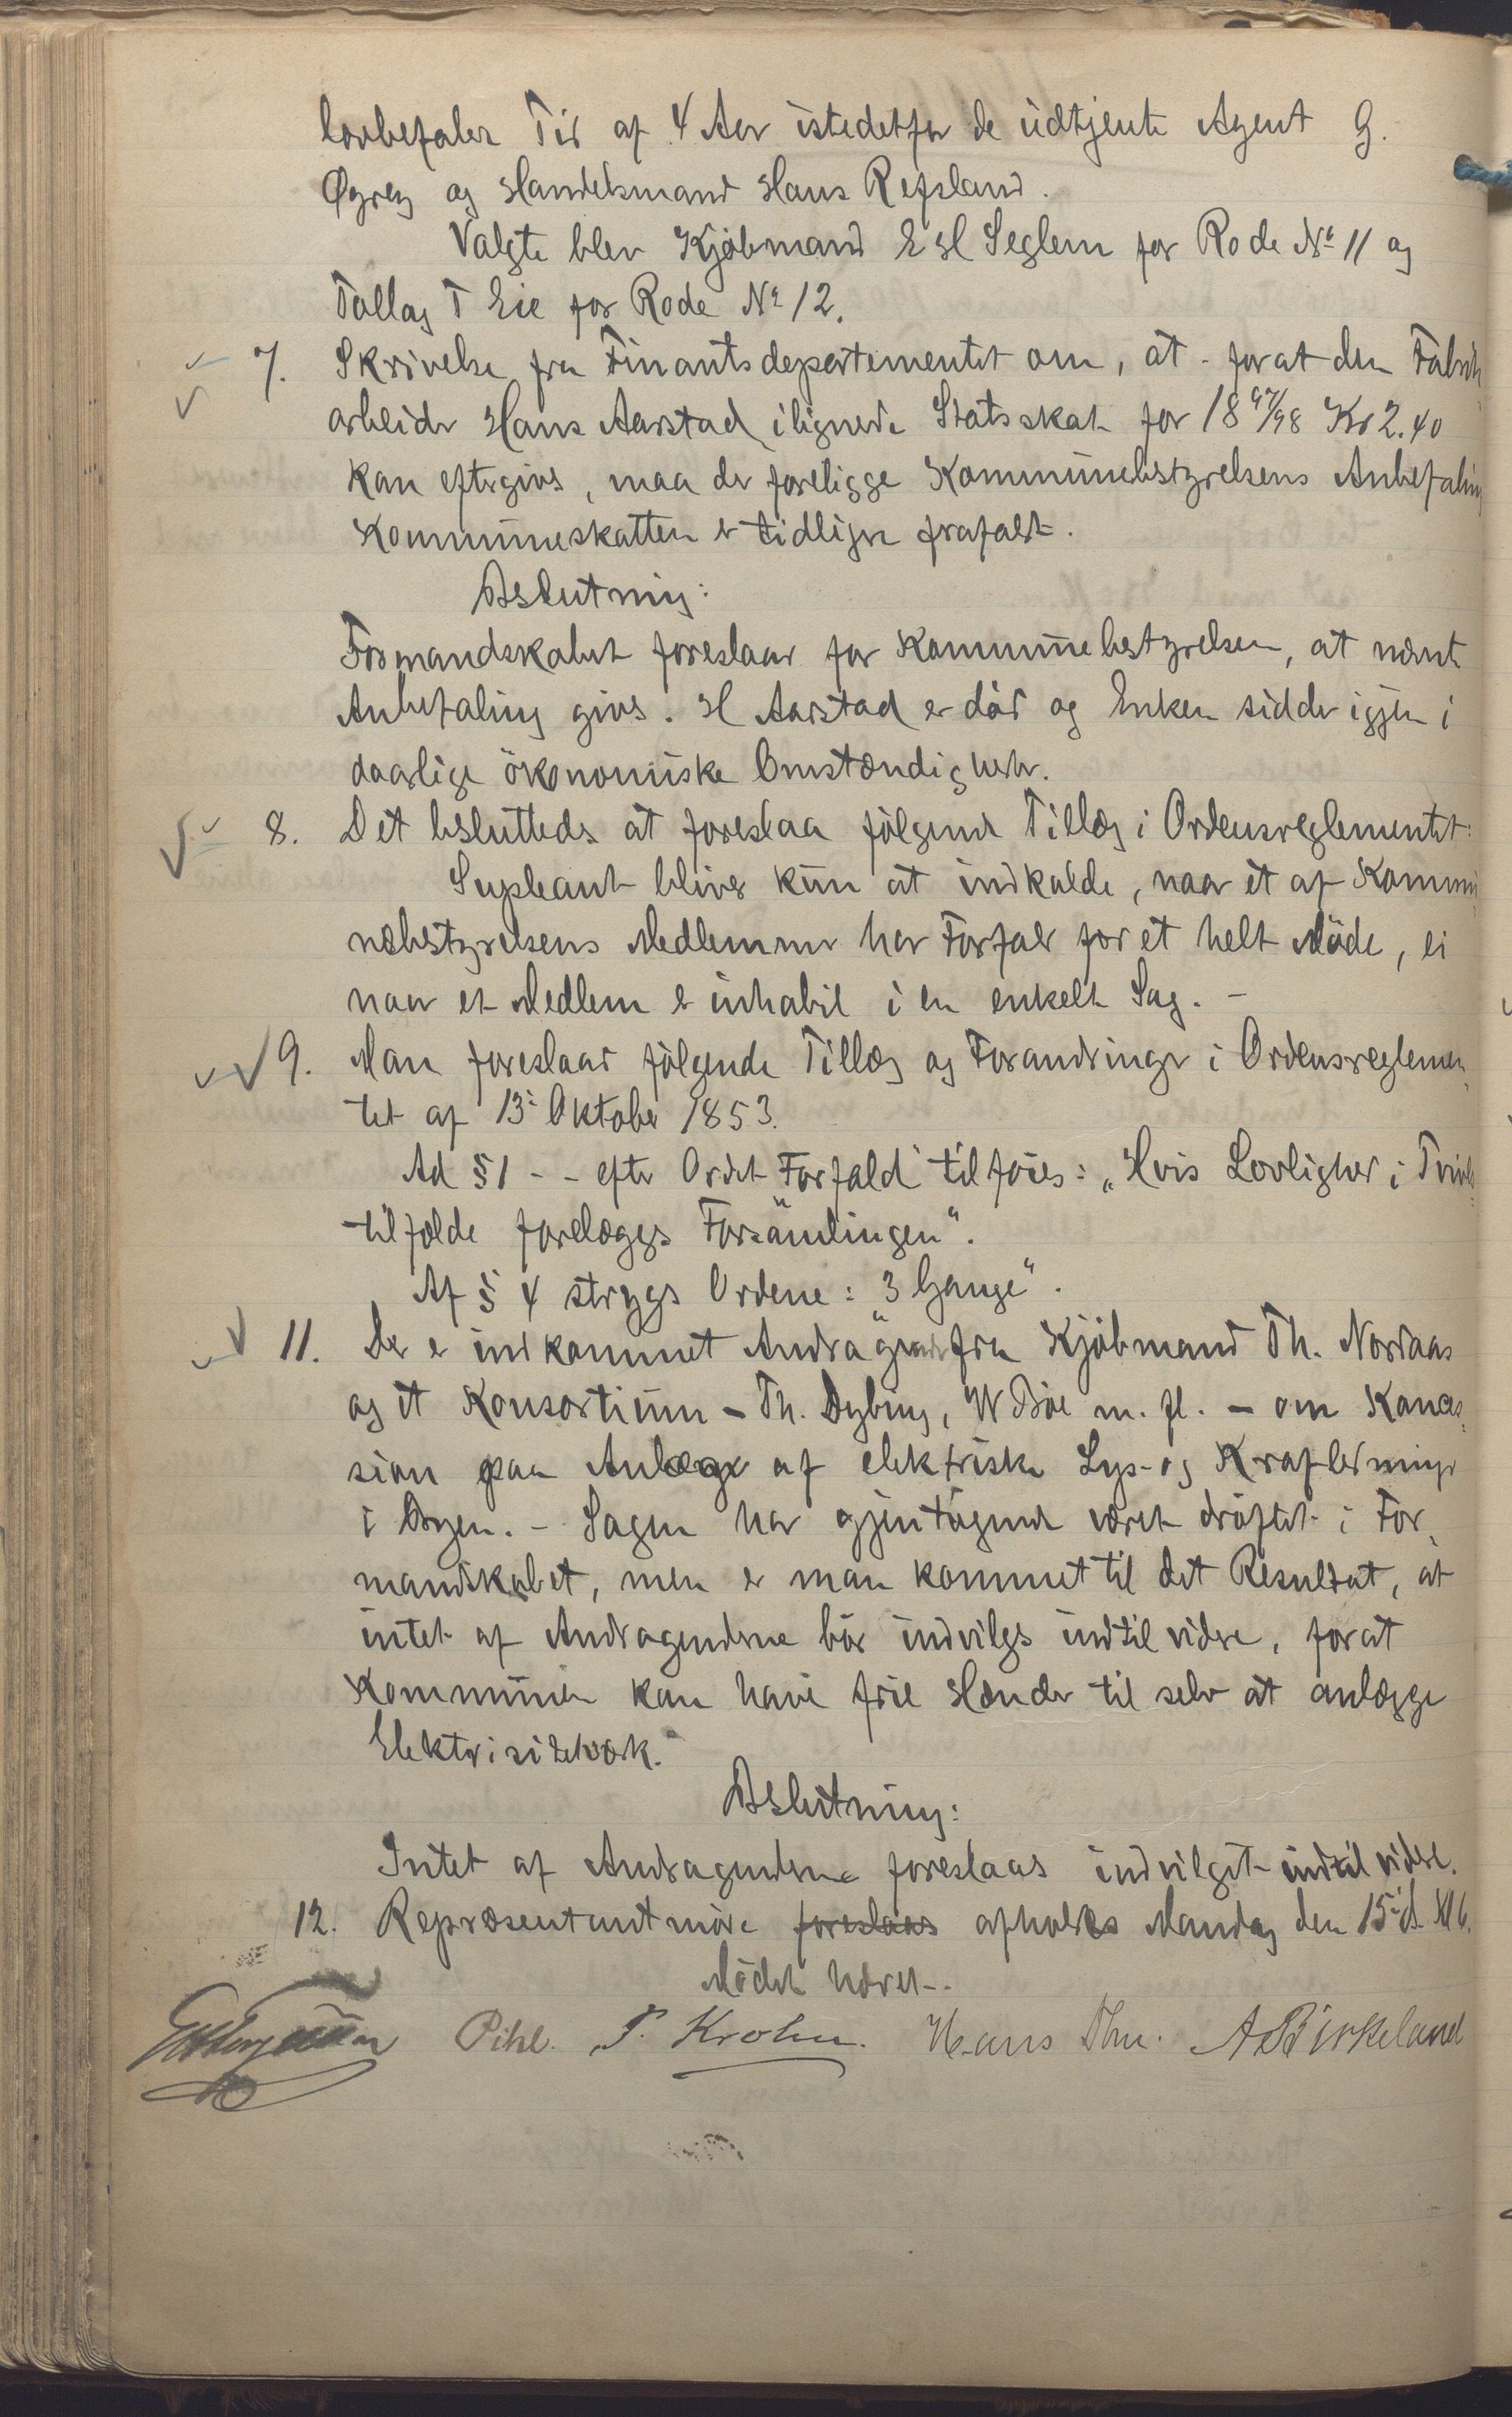 lovbefalen Tid af 4 Aar istedetfor de udtjente Agent G.
Øgrey og Handelsmand Hans Refsland.
Valgte blev Kjøbmand E H Seglem for Rode No 11 og
Tallag T Eie for Rode No 12.
7. Skrivelse fra Finantsdepartementet om, at - forat den Fabrik
arbeider Hans Aarstad ilignede Statsskat for 1897/98 Kr 2.40
kan eftergives, maa der foreligge Kommunebestyrelsens Anbefaling
Kommuneskatten er tidligere frafaldt.
Beslutning:
Formandskabet foreslaar for Kommunebestyrelsen, at nævnte
Anbefaling gives. H Aarstad er död og Enken sidder igjen i
daarlige ökonomiske Omstændigheder.
8. Det besluttedes at foreslaa fölgende Tillæg i Ordensreglementet:
Supleant bliver kun at indkalde, naar et af Kommu
nebestyrelsens Medlemmer har Forfald for et helt Möde, ei
naar et Medlem er inhabil i en enkelt Sag. -
9. Man foreslaar fölgende Tillæg og Forandringer i Ordensreglemen
tet af 13de Oktober 1853.
Ad § 1 - - efter Ordet "Forfald" tilföies: „Hvis Lovlighed i Tvivls
tilfælde forelægges Forsamlingen".
Af § 4 stryges Ordene: "3 Gange".
11. Der er indkommet Andragende fra Kjöbmand Th. Nordaas
og et Konsortium - Th. Dybing, W Böe m. fl. - om Konces
sion paa Anlæg af elektriske Lys- og Kraftledninger
i Byen. - Sagen har gjentagende været dröftet i For
mandskabet, men er man kommet til det Resultat, at
intet af Andragenderne bör indvilges indtil videre, forat
Kommunen kan have frie Hænder til selv at anlægge
Elektrisitetværk.
Beslutning:
Intet af Andragenderne foreslaaes indvilget indtil videre.
12. Repræsentantmöde foreslaaes afholdes Mandag den 15de ds Kl 6.
Mödet hævet -.
Pihl. P. Krohn. Hans Thu. A Birkeland